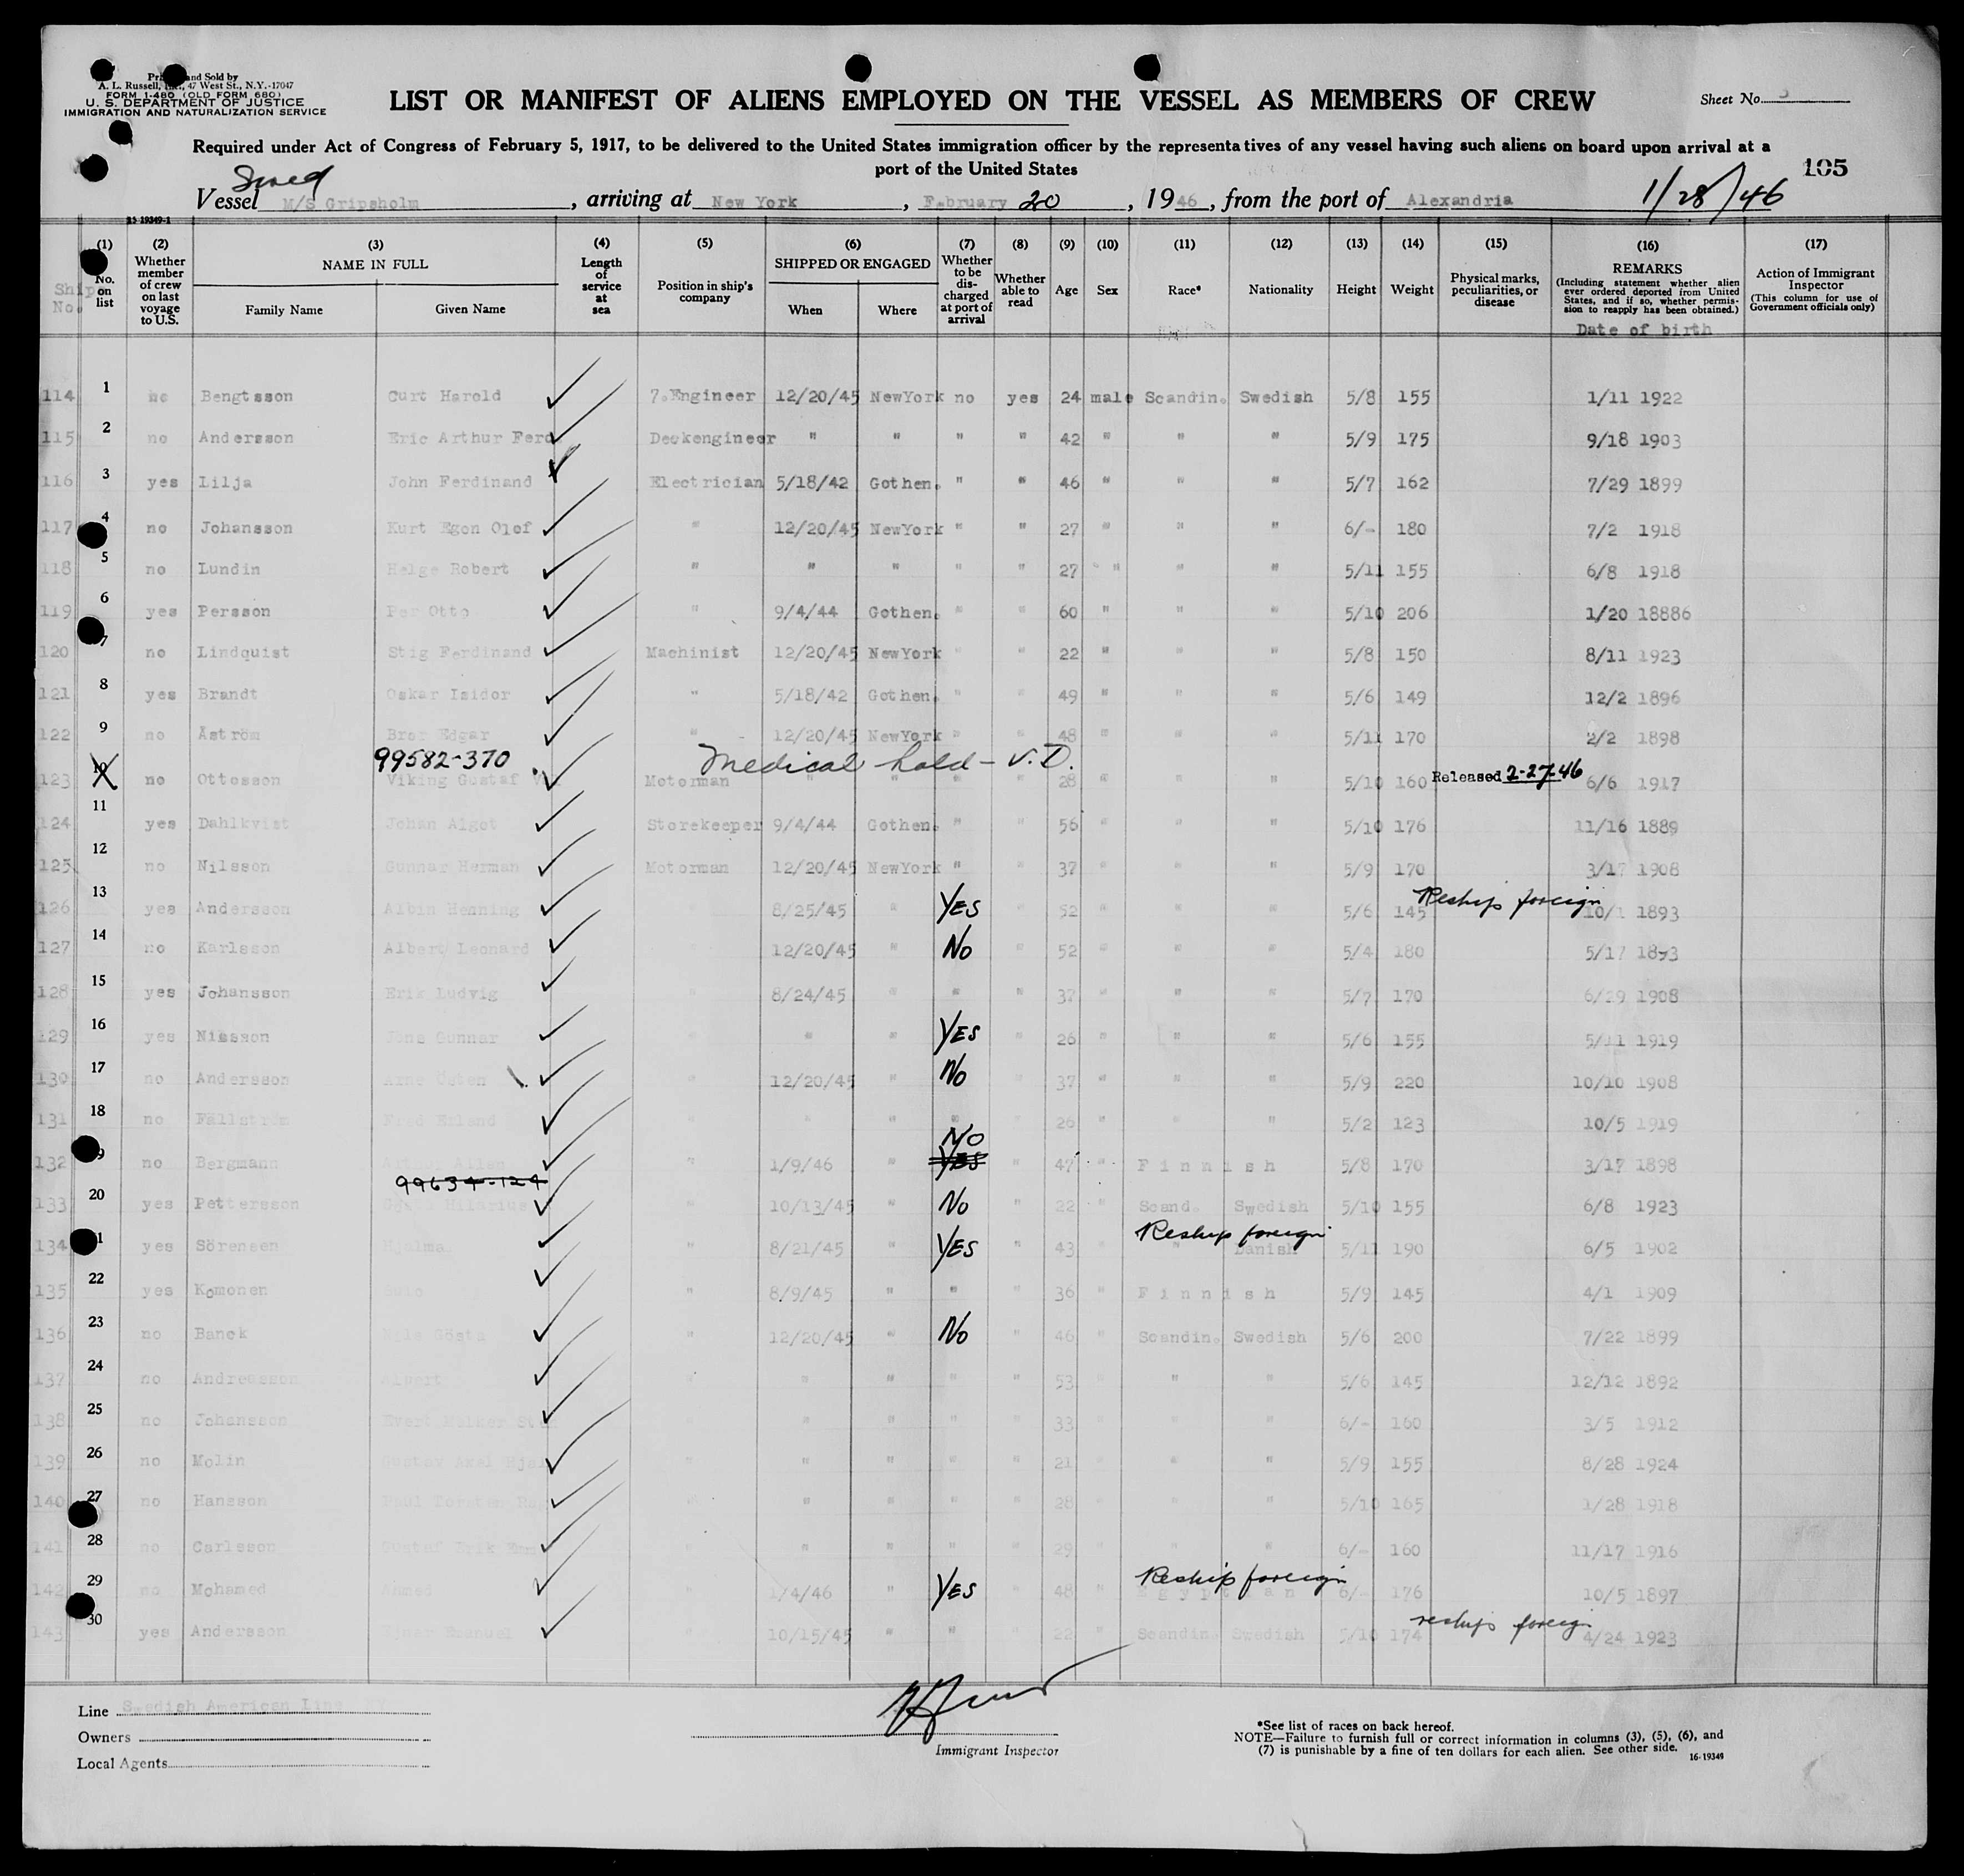 Printed and Sold by
A. L. Russell, Inc., 47 West St., N.Y.-17047
FORM I-480 (OLD FORM 680)
U. S. DEPARTMENT OF JUSTICE
IMMIGRATION AND NATURALIZATION SERVICE
LIST OR MANIFEST OF ALIENS EMPLOYED ON THE VESSEL AS MEMBERS OF CREW
Sheet No.
Required under Act of Congress of February 5, 1917, to be delivered to the United States immigration officer by the representatives of any vessel having such aliens on board upon arrival at a
port of the United States
105
Swed
Vessel M/S Gripsholm, arriving at New York, February 20, 1946, from the port of Alexandria 1/28/46
(1) (2) (3) (4) (5) (6) (7) (8) (9) (10) (11) (12) (13) (14) (15) (16) (17)
Ship No. No. on list Whether member of crew on last voyage to U.S. NAME IN FULL Family Name Given Name Length of service at sea Position in ship's company SHIPPED OR ENGAGED When Where Whether to be discharged at port of arrival Whether able to read Age Sex Race* Nationality Height Weight Physical marks, peculiarities, or disease REMARKS (Including statement whether alien ever ordered deported from United States, and if so, whether permission to reapply has been obtained.) Date of birth Action of Immigrant Inspector (This column for use of Government officials only)
114 1 no Bengtsson Curt Harold 7.Engineer 12/20/45 NewYork no yes 24 male Scandin. Swedish 5/8 155 1/11 1922
115 2 no Andersson Eric Arthur Ferd Deckengineer " " " " 42 " " " 5/9 175 9/18 1903
116 3 yes Lilja John Ferdinand Electrician 5/18/42 Gothen. " " 46 " " " 5/7 162 7/29 1899
117 4 no Johansson Kurt Egon Olof " 12/20/45 NewYork " " 27 " " " 6/- 180 7/2 1918
118 5 no Lundin Helge Robert " " " " " 27 " " " " 5/11 155 6/8 1918
119 6 yes Persson Per Otto " 9/4/44 Gothen. " " 60 " " " 5/10 206 1/20 18886
120 7 no Lindquist Stig Ferdinand Machinist 12/20/45 NewYork " " 22 " " " 5/8 150 8/11 1923
121 8 yes Brandt Oskar Isidor " 5/18/42 Gothen. " " 49 " " " 5/6 149 12/2 1896
122 9 no Åström Bror Edgar " 12/20/45 NewYork " " 48 " " " 5/11 170 2/2 1898
99582-370 Medical hold - V.D.
123 10 no Ottosson Viking Gustaf Motorman " " " " 28 " " " 5/10 160 Released 2-27-46 6/6 1917
124 11 yes Dahlkvist Johan Algot Storekeeper 9/4/44 Gothen. " " 56 " " " 5/10 176 11/16 1889
125 12 no Nilsson Gunnar Herman Motorman 12/20/45 NewYork " " 37 " " " 5/9 170 3/17 1908
126 13 yes Andersson Albin Henning " 8/25/45 " YES " 52 " " " 5/6 145 Reship foreign 10/1 1893
127 14 no Karlsson Albert Leonard " 12/20/45 " No " 52 " " " 5/4 180 5/17 1893
128 15 yes Johansson Erik Ludvig " 8/24/45 " " " 37 " " " 5/7 170 6/29 1908
129 16 yes Nilsson Jöns Gunnar " " " YES " 26 " " " 5/6 155 5/11 1919
130 17 no Andersson Arne Östen " 12/20/45 " No " 37 " " " 5/9 220 10/10 1908
131 18 no Fällström Fred Erland " " " " " 26 " " " 5/2 123 10/5 1919
132 19 no Bergmann Arthur Allan " 1/9/46 " No YES " 47 " Finnish 5/8 170 3/17 1898
99634-124
133 20 yes Pettersson Hilarius " 10/13/45 " No " 22 " Scand. Swedish 5/10 155 6/8 1923
134 21 yes Sörensen Hjalma " 8/21/45 " YES " 43 Reship foreign " Danish 5/11 190 6/5 1902
135 22 yes Komonen " 8/9/45 " " " 36 " Finnish 5/9 145 4/1 1909
136 23 no Banck Nils Gösta " 12/20/45 " No " 46 " Scandin. Swedish 5/6 200 7/22 1899
137 24 no Andreasson Albert " " " " " 53 " " " 5/6 145 12/12 1892
138 25 no Johansson Evert " " " " " 33 " " " 6/- 160 3/5 1912
139 26 no Molin Gustav Axel Hjal " " " " " 21 " " " 5/9 155 8/28 1924
140 27 no Hansson Paul Torsten " " " " " 28 " " " 5/10 165 1/28 1918
141 28 no Carlsson Gustaf Erik " " " " " 29 " " " 6/- 160 11/17 1916
142 29 no Mohamed Ahmed " 1/4/46 " YES " 48 " Reship foreign Egyptian 6/- 176 10/5 1897
143 30 yes Andersson Emanuel " 10/15/45 " " " 22 " Scandin. Swedish 5/10 174 reship foreign 4/24 1923
Line Swedish American Line
Owners
Local Agents
Immigrant Inspector
*See list of races on back hereof.
NOTE—Failure to furnish full or correct information in columns (3), (5), (6), and
(7) is punishable by a fine of ten dollars for each alien. See other side. 16-19349